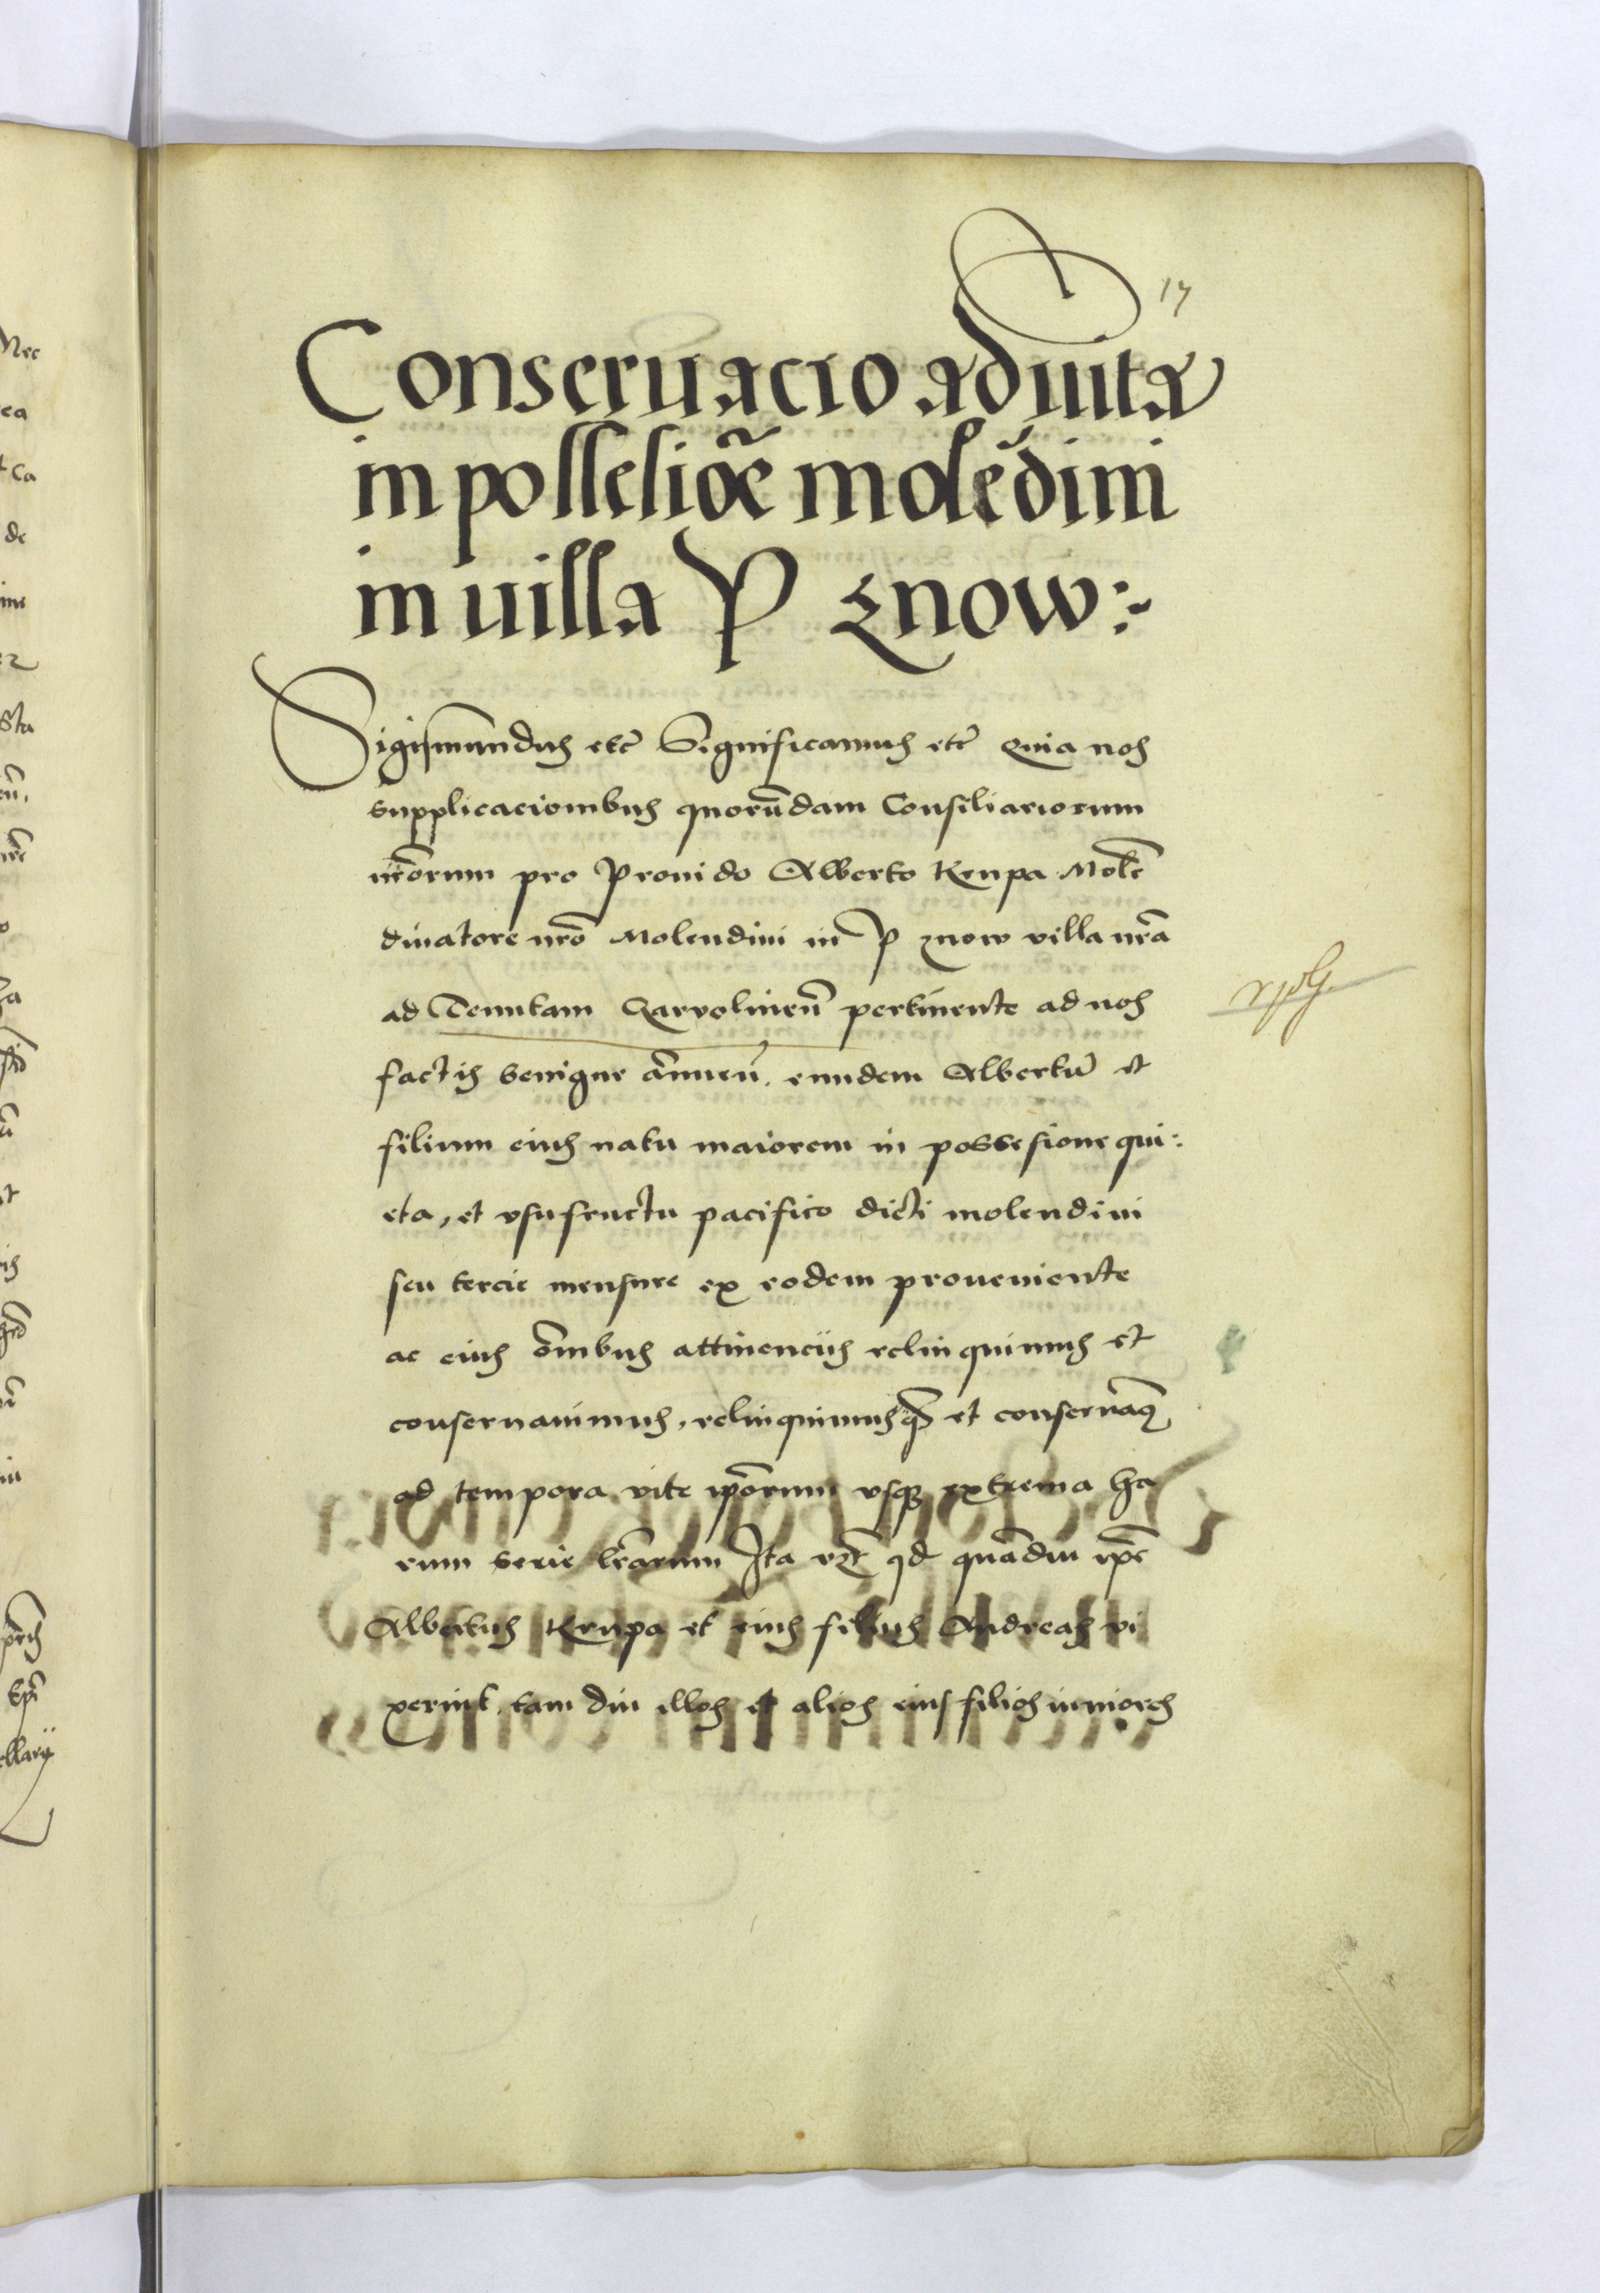 17
Conseruacio ad uitã
in possesiõe molẽdini
in uilla P znow :~
Sigismundus etc̃ Significamus etc̃ Quia nos
supplicacionibus quorũdam Consiliariorum
nr̃orum pro Prouido Alberto Krupa Molẽ
dinatore nrõ Molendini in P znow villa nrã
ad Tenutam Garvolineñ pertinente ad nos
factis benigne ãnnueñ. eundem Albertũ et
filium eius natu maiorem in possesione qui:
eta, et vsufructu pacifico dicti molendini
seu tercie mensure ex eodem proueniente
ac eius õmbus attinenciis relinquimus et
conseruauimus, relinquimusq3 et conseruãꝰ
ad tempora vite ipõrum vsq3 extrema ha
rum serie lr̃arum Ita vzt̃ qd quãdiu ipẽ
Albertus Krupa et eius filius Andreas vi
xerint, tam diu illos et alios eius filios iuniores